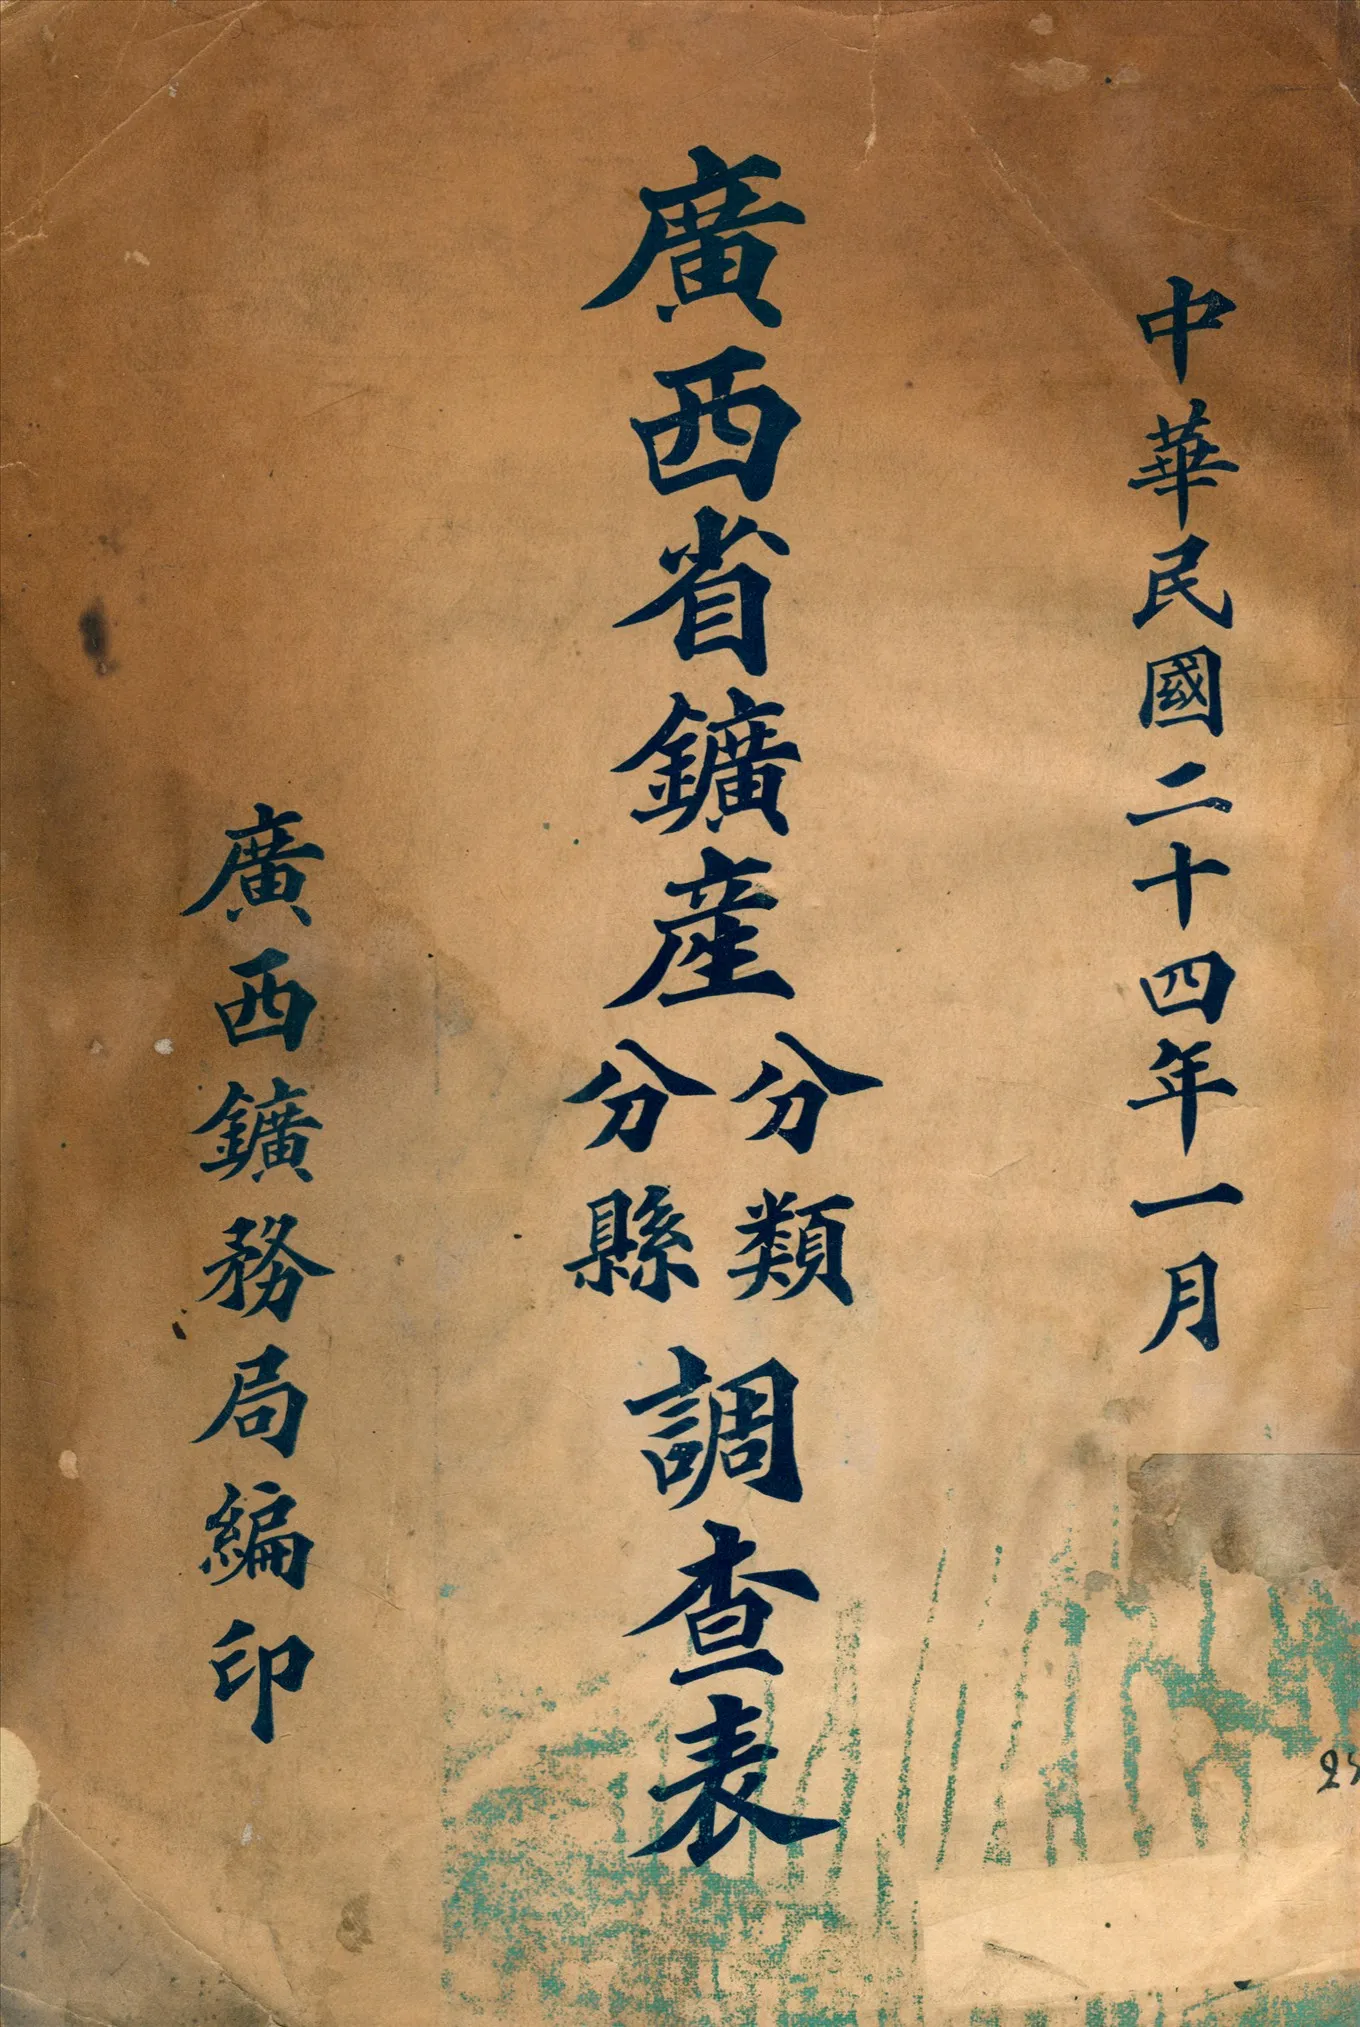 中華民國二十四年一月
廣西省鑛產分類分縣調查表
廣西鑛務局編印